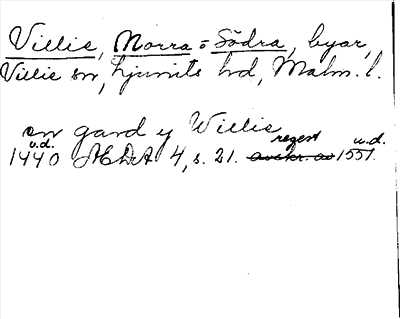 Villie, Norra o Södra, byar,
Villie sn, Ljunits hd, Malm. l.
en gard y Willie
1440 u.d. ÆDA 4, s. 21. regest avskr. av 1551. u.d.